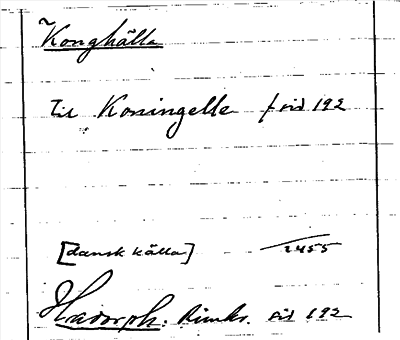 Konghälla
til Koningelle / sid 192
[dansk källa] 1455
Hadorph. Rimkr. sid 192